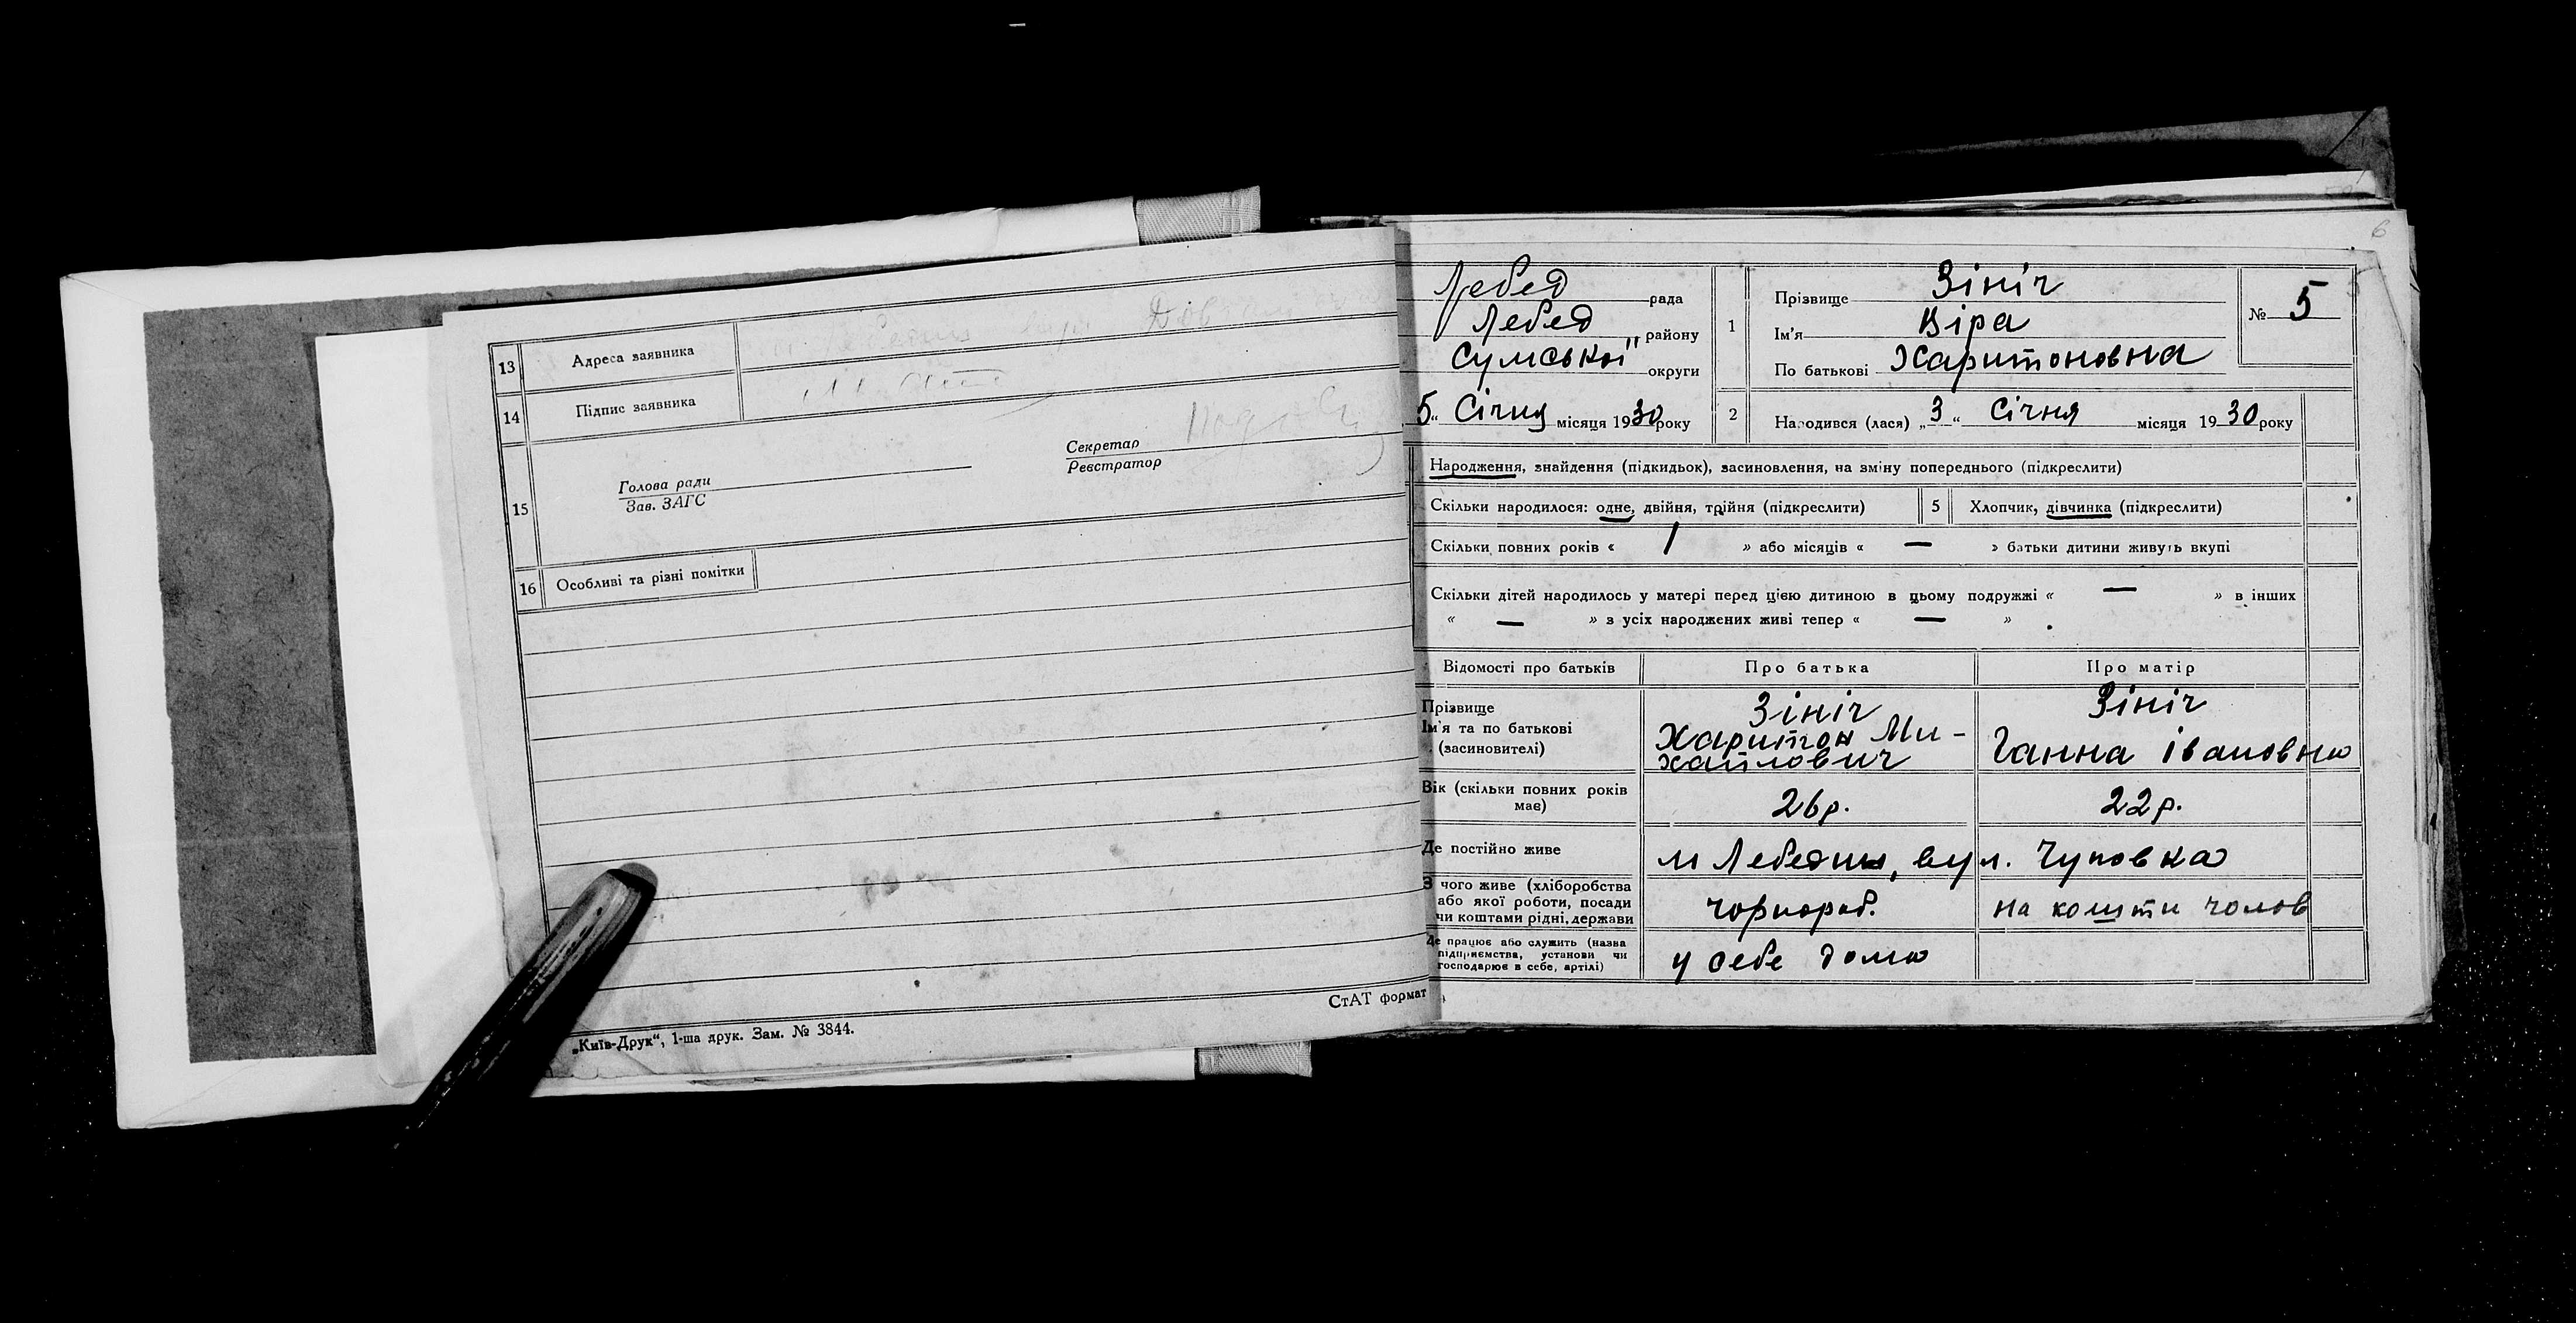 13 Адреса заявника
14 Підпис заявника
15 Голова ради
Зав. ЗАГС
Секретар
Реєстратор
16 Особливі та різні помітки
„Київ-Друк“, 1-ша друк. Зам. № 3844.
СтАТ формат
6
Лебед рада
Лебед району
Сумської округи
5“ Січня місяця 1930 року
1 Прізвище Зініч
Ім'я Віра
По батькові Харитоновна
№ 5
2 Народився (лася) „3“ Січня місяця 1930 року
Народження, знайдення (підкидьок), засиновлення, на зміну попереднього (підкреслити)
Скільки народилося: одне, двійня, трійня (підкреслити) 5 Хлопчик, дівчинка (підкреслити)
Скільки повних років « 1 » або місяців « — » батьки дитини живуть вкупі
Скільки дітей народилось у матері перед цією дитиною в цьому подружжі « — » в інших
« — » з усіх народжених живі тепер « — »
Відомості про батьків Про батька Про матір
Прізвище
Ім'я та по батькові
(засиновителі)
Зініч
Харитон Ми-
хайлович
Зініч
Ганна Івановна
Вік (скільки повних років
має)
26р. 22р.
Де постійно живе м Лебедин, вул. Чуповка
З чого живе (хліборобства
або якої роботи, посади
чи коштами рідні, держави
чорнороб. на кошти чолов
Де працює або служить (назва
підприємства, установи чи
господарює в себе, артілі)
у себе дома